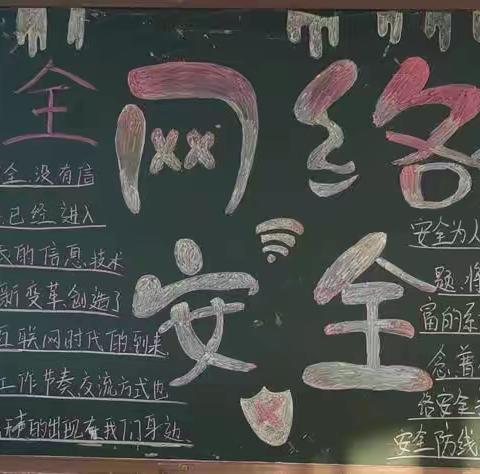 全
全,没有信
已经进入
的信息技术
新变革,创造了
互联网时代的到来,
工作节奏,交流方式也
的出现在我们身边
网络
安全
安全为人
题,
富的
念,普
络安全
安全防线